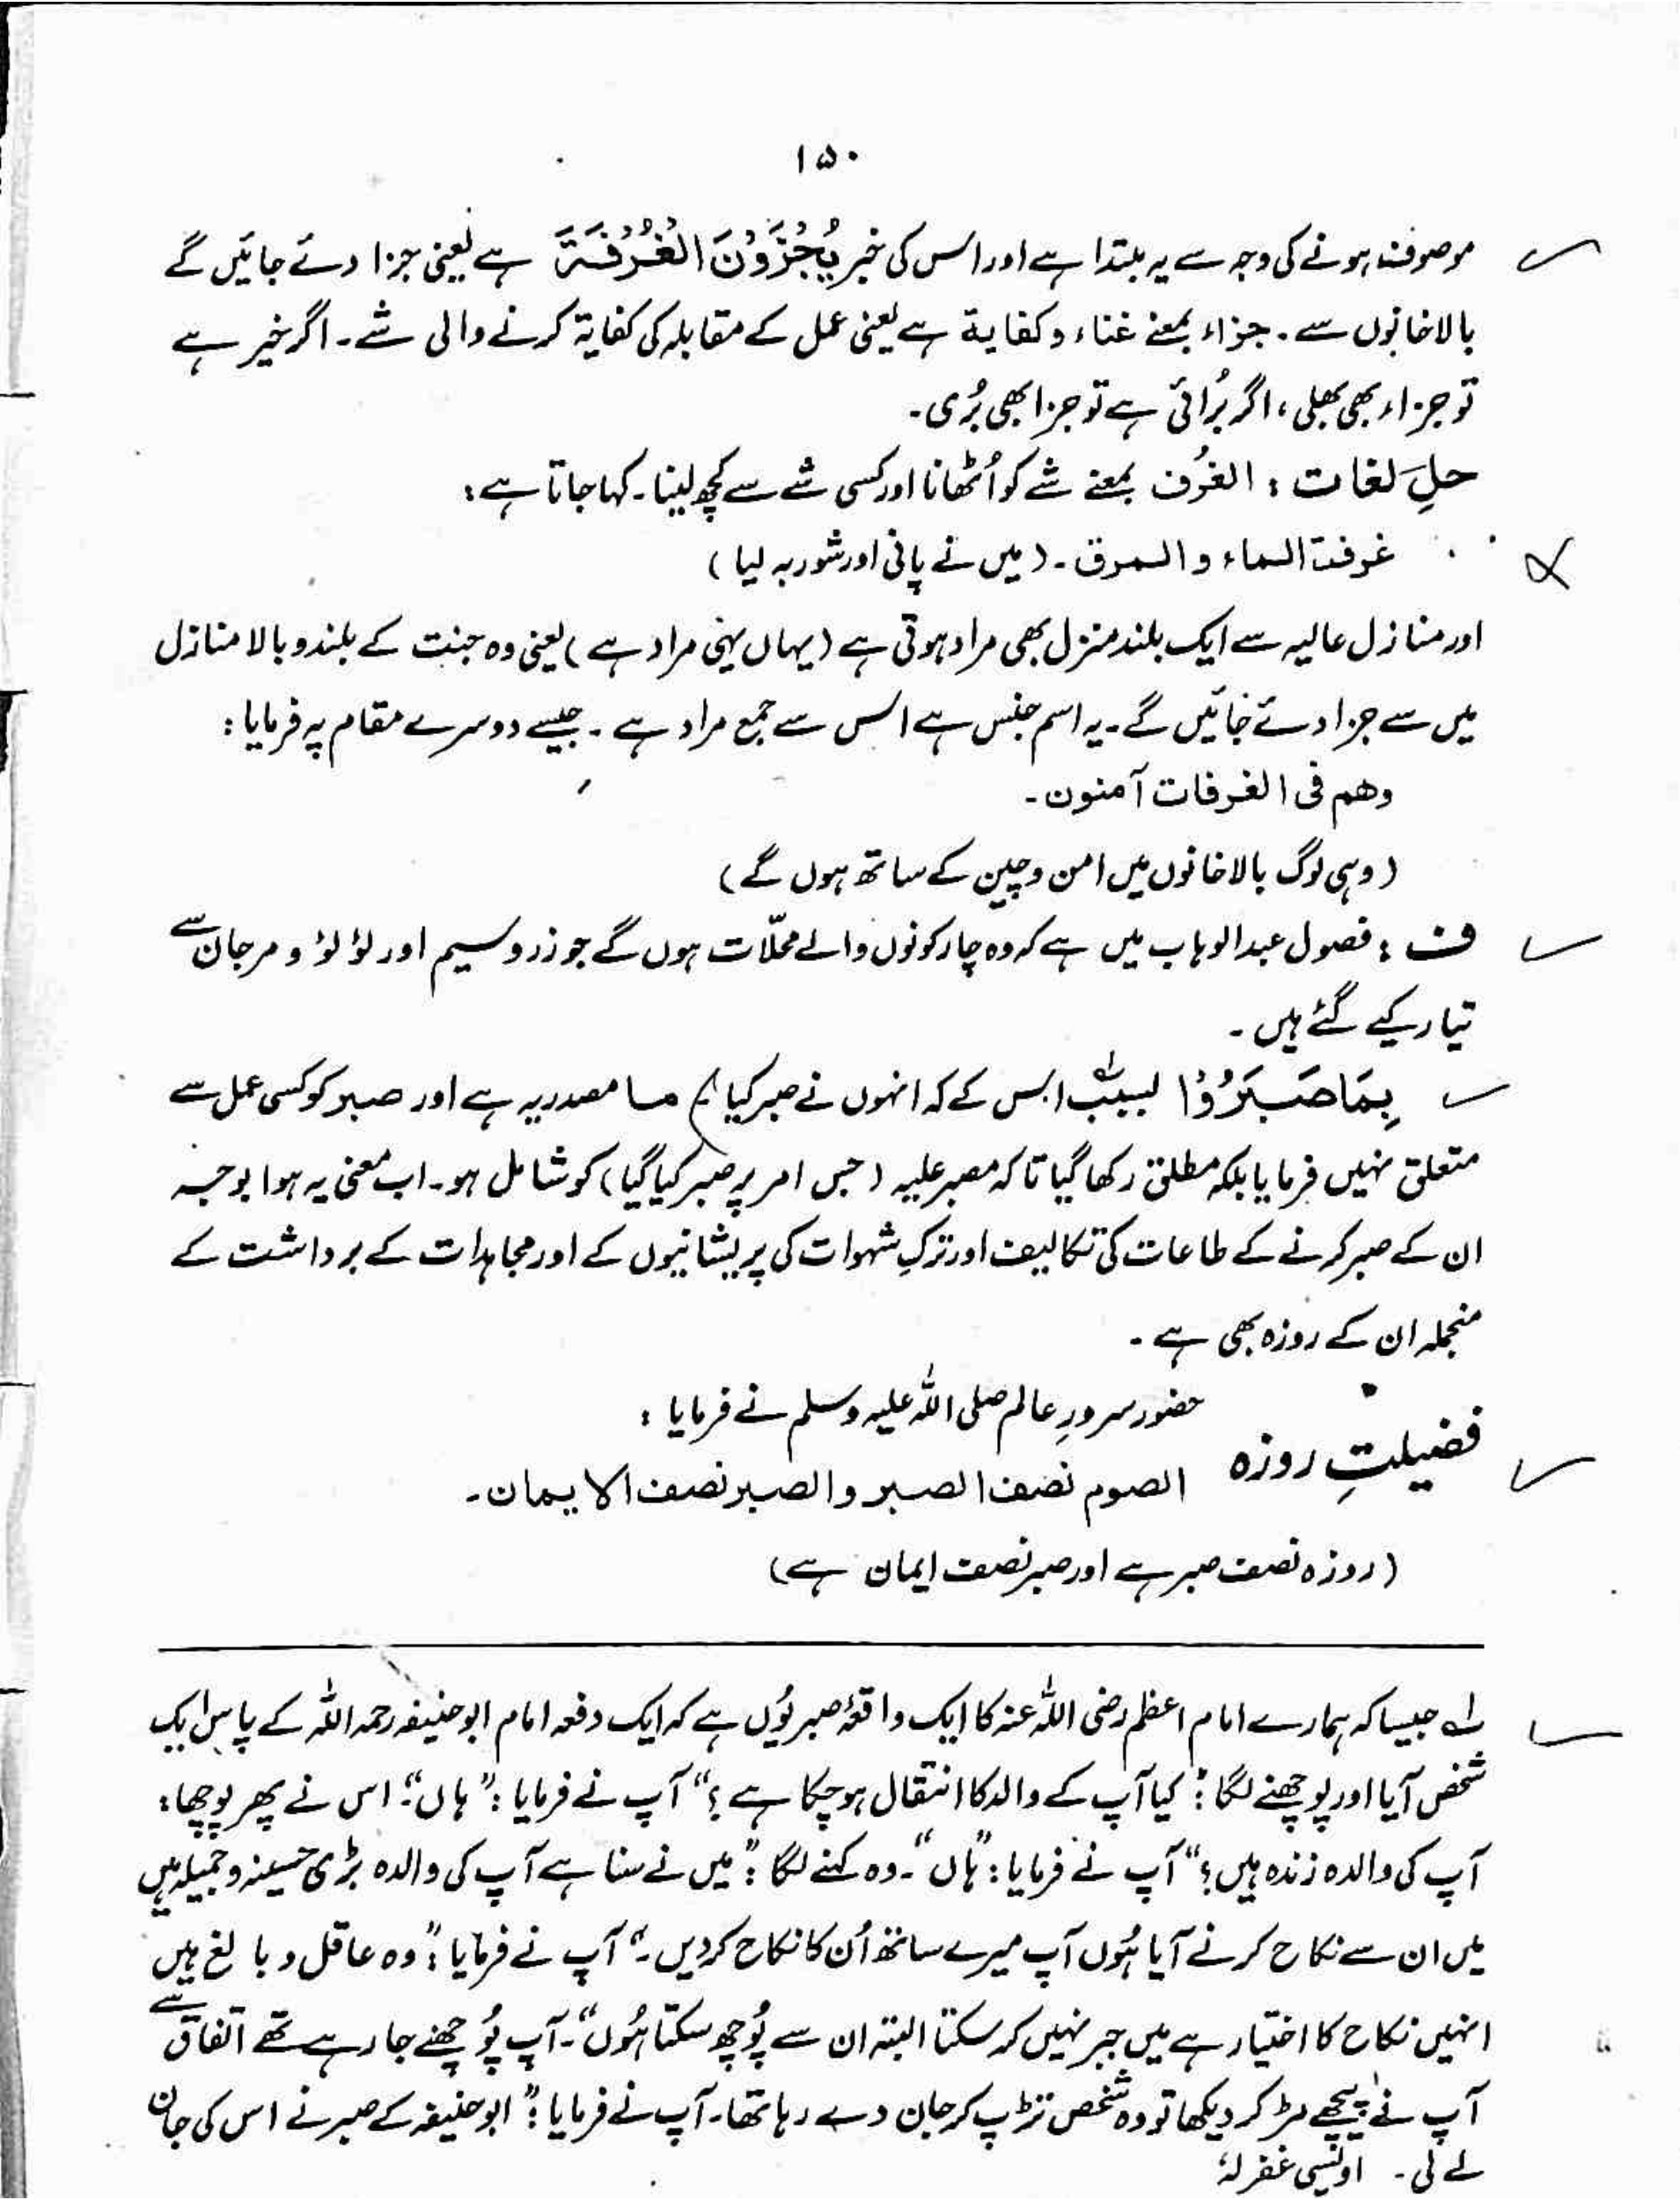 ۱۵۰
موصوفہ ہونے کی وجہ سے یہ مبتدا ہے اور اس کی خبر یُجْزَوْنَ الْغُرْفَۃَ ہے یعنی جزا دئے جائیں گے
بالاخانوں سے۔ جزاء بمعنے غناء و کفایۃ ہے یعنی عمل کے مقابلہ کی کفایۃ کرنے والی شے۔ اگر خیر ہے
تو جزاء بھی بھلی، اگر بُرائی ہے تو جزا بھی بُری۔
حلِ لغات : الغرف بمعنے شے کو اُٹھانا اور کسی شے سے کچھ لینا۔ کہا جاتا ہے :
غرفت الماء و المرق۔ (میں نے پانی اور شوربہ لیا)
اور منازل عالیہ سے ایک بلند منزل بھی مراد ہوتی ہے (یہاں یہی مراد ہے) یعنی وہ جنت کے بلند و بالا منازل
میں سے جزا دئے جائیں گے۔ یہ اسم جنس ہے اس سے جمع مراد ہے۔ جیسے دوسرے مقام پہ فرمایا :
وھم فی الغرفات آمنون۔
(وہی لوگ بالاخانوں میں امن و چین کے ساتھ ہوں گے)
ف : فصول عبدالوہاب میں ہے کہ وہ چار کونوں والے محلّات ہوں گے جو زر و سیم اور لؤلؤ و مرجان سے
تیار کیے گئے ہیں۔
بِمَا صَبَرُوْا بسبب اس کے کہ انہوں نے صبر کیا لہ ما مصدریہ ہے اور صبر کو کسی عمل سے
متعلق نہیں فرمایا بلکہ مطلق رکھا گیا تاکہ مصبر علیہ (جس امر پر صبر کیا گیا) کو شامل ہو۔ اب معنی یہ ہوا بوجہ
ان کے صبر کرنے کے طاعات کی تکالیف اور ترکِ شہوات کی پریشانیوں کے اور مجاہدات کے برداشت کے
منجملہ ان کے روزہ بھی ہے۔
فضیلتِ روزہ حضور سرورِ عالم صلی اللہ علیہ وسلم نے فرمایا :
الصوم نصف الصبر و الصبر نصف الایمان۔
(روزہ نصف صبر ہے اور صبر نصف ایمان ہے)
لہ جیسا کہ ہمارے امام اعظم رضی اللہ عنہ کا ایک واقعۂ صبر یُوں ہے کہ ایک دفعہ امام ابوحنیفہ رحمہ اللہ کے پاس ایک
شخص آیا اور پوچھنے لگا : "کیا آپ کے والد کا انتقال ہوچکا ہے ؟" آپ نے فرمایا : "ہاں"۔ اس نے پھر پوچھا :
آپ کی والدہ زندہ ہیں ؟" آپ نے فرمایا : "ہاں"۔ وہ کہنے لگا : "میں نے سنا ہے آپ کی والدہ بڑی حسینہ و جمیلہ ہیں
میں ان سے نکاح کرنے آیا ہُوں آپ میرے ساتھ اُن کا نکاح کردیں۔" آپ نے فرمایا : "وہ عاقل و بالغ ہیں
انہیں نکاح کا اختیار ہے میں جبر نہیں کرسکتا البتہ ان سے پُوچھ سکتا ہُوں"۔ آپ پُوچھنے جا رہے تھے اتفاق سے
آپ نے پیچھے مڑ کر دیکھا تو وہ شخص تڑپ کر جان دے رہا تھا۔ آپ نے فرمایا : "ابوحنیفہ کے صبر نے اس کی جان
لے لی۔ اویسی غفرلہٗ